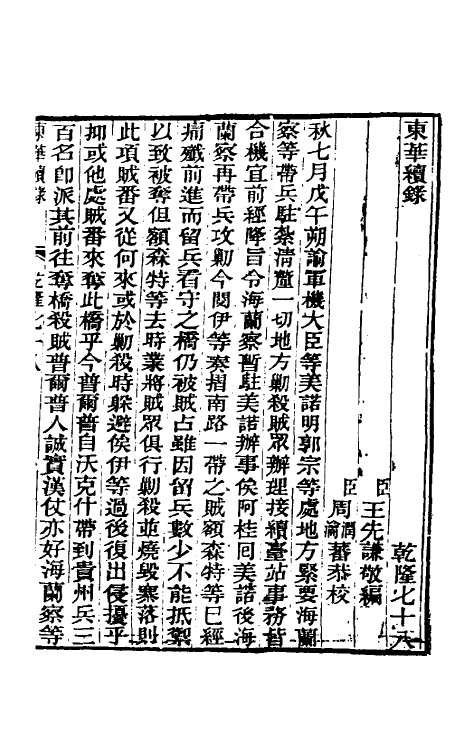 東華續錄 乾隆七十八
臣王先謙敬編
臣周潤蕃 周瀹蕃恭校
秋七月戊午朔諭軍機大臣等美諾明郭宗等處地方緊要海蘭
察等帶兵駐紮淸釐一切地方勦殺賊眾辦理接續臺站事務皆
合機宜前經降旨令海蘭察暫駐美諾辦事俟阿桂囘美諾後海
蘭察再帶兵攻勦今閱伊等奏摺南路一帶之賊額森特等已經
痛殲前進而留兵看守之橋仍被賊占雖因留兵數少不能抵禦
以致被奪但額森特等去時業將賊眾俱行勦殺並燒毀寨落則
此項賊番又從何來或於勦殺時躲避俟伊等過後復出侵擾乎
抑或他處賊番來奪此橋乎今普爾普自沃克什帶到貴州兵三
百名卽派其前往奪橋殺賊普爾普人誠實漢仗亦好海蘭察等
東華續錄 乾隆七十八